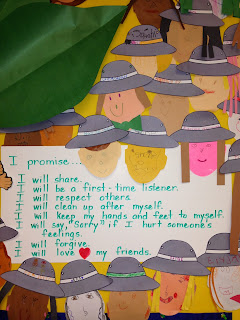 I promise...
I will share.
I will be a first-time listener.
I will respect others.
I will clean up after myself.
I will keep my hands and feet to myself.
I will say, "Sorry" if I hurt someone's
feelings.
I will forgive.
I will love my friends.